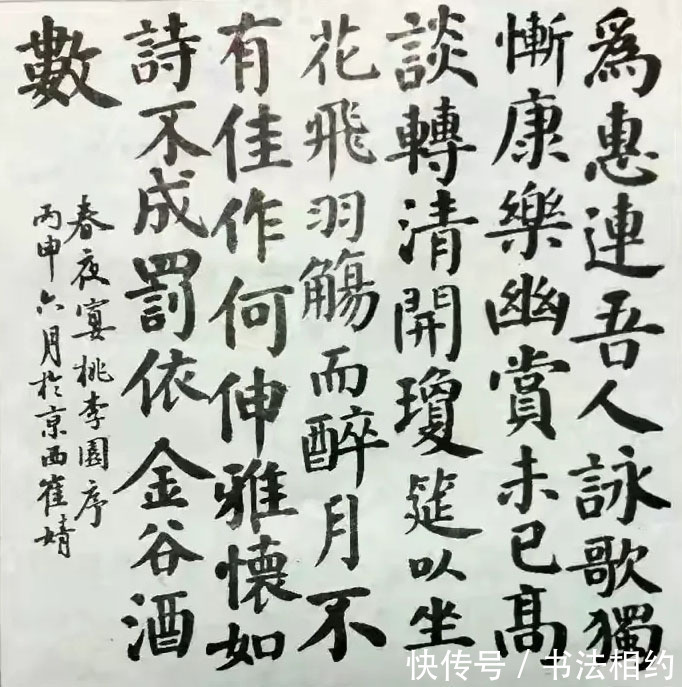 爲惠連吾人詠歌獨
慚康樂幽賞未已高
談轉清開瓊筵以坐
花飛羽觴而醉月不
有佳作何伸雅懷如
詩不成罰依金谷酒
數
春夜宴桃李園序
丙申六月於京西崔婧
快传号/书法相约